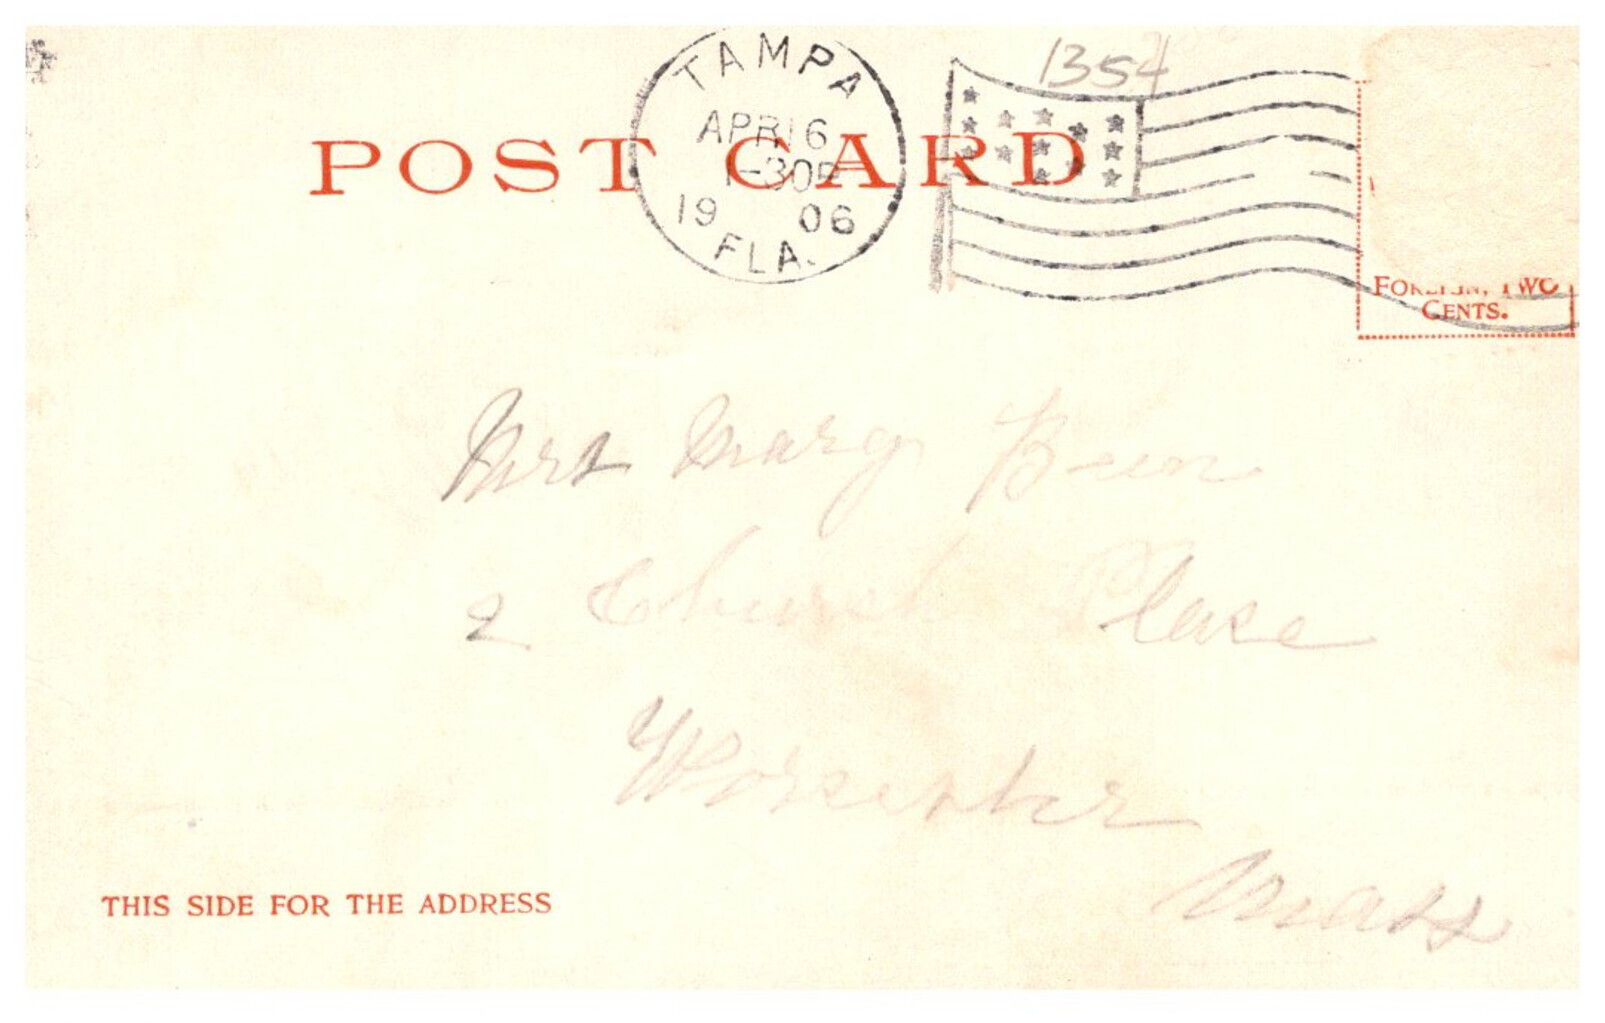 1354
TAMPA
APR 16
1-30P
19 06
FLA.
POST CARD
FOREIGN, TWO
CENTS.
Mrs Mary
2 Church Place
Worcester
Mass
THIS SIDE FOR THE ADDRESS